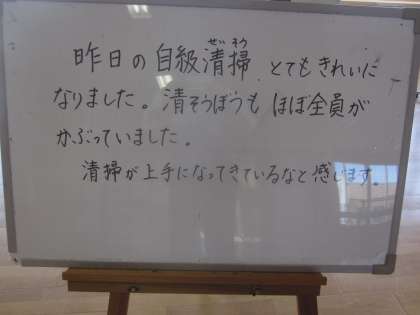 昨日の自級清掃、とてもきれいに
なりました。清そうぼうもほぼ全員が
かぶっていました。
清掃が上手になってきているなと感じます。